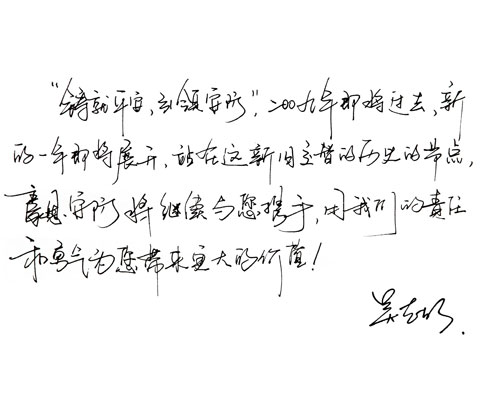 “铸就平安,引领安防”,二〇〇九年即将过去,新
的一年即将展开,站在这新旧交替的历史的节点,
安防将继续与您携手,用我们的责任
和勇气为您带来更大的价值!
吴志明.